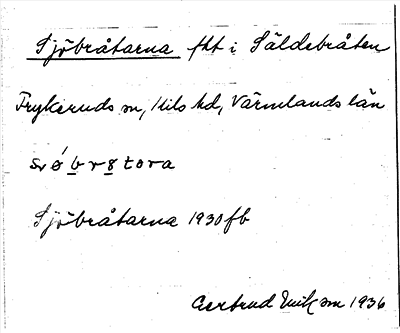 Sjöbråtarna fht i Säldebråten
Frykeruds sn, Kils hd, Värmlands län
Sjöbråtarna 1930 fb
Gertrud Eriksson 1936